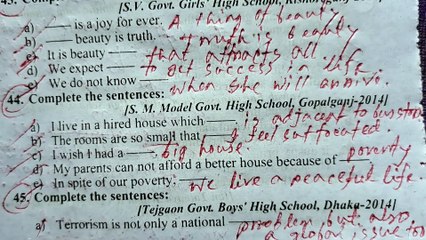 [S.V. Govt. Girls' High School,
a) —— is a joy for ever. A thing of beauty
b) —— beauty is truth. truth is beauty
c) It is beauty —— that attracts all
d) We expect —— to get success in life
e) We do not know —— when she will arrive.
44. Complete the sentences:
[S. M. Model Govt. High School, Gopalganj-2014]
a) I live in a hired house which —— is adjacent to bus stop
b) The rooms are so small that —— I feel suffocated.
c) I wish I had a —— big house.
d) My parents can not afford a better house because of —— poverty
e) In spite of our poverty —— we live a peaceful life.
45. Complete the sentences:
[Tejgaon Govt. Boys' High School, Dhaka-2014]
a) Terrorism is not only a national —— problem but also
a global issue too